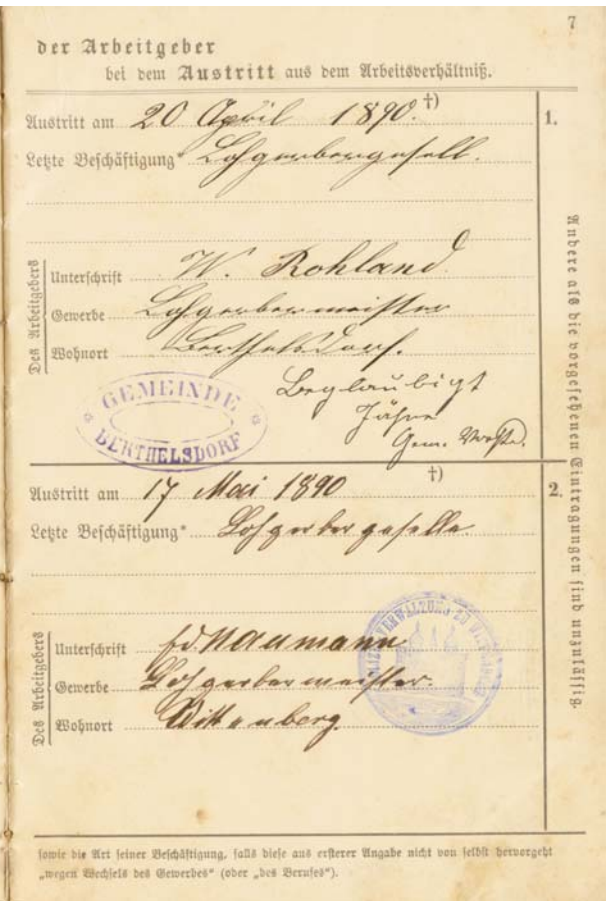 7
der Arbeitgeber
bei dem Austritt aus dem Arbeitsverhältniß.
Austritt am 20 April 1890. †)
1.
Letzte Beschäftigung* Lohgerbergesell.
Des Arbeitgebers
Unterschrift W. Rohland
Gewerbe Lohgerbermeister
Wohnort Berthelsdorf.
GEMEINDE
BERTHELSDORF
Beglaubigt
Jähne
Gem. Vorst.
Austritt am 17 Mai 1890 †)
2.
Letzte Beschäftigung* Lohgerbergeselle.
Des Arbeitgebers
Unterschrift Naumann
Gewerbe Lohgerbermeister.
Wohnort Wittenberg.
Andere als die vorgesehenen Eintragungen sind unzulässig.
sowie die Art seiner Beschäftigung, falls diese aus ersterer Angabe nicht von selbst hervorgeht
„wegen Wechsels des Gewerbes“ (oder „des Berufes“).